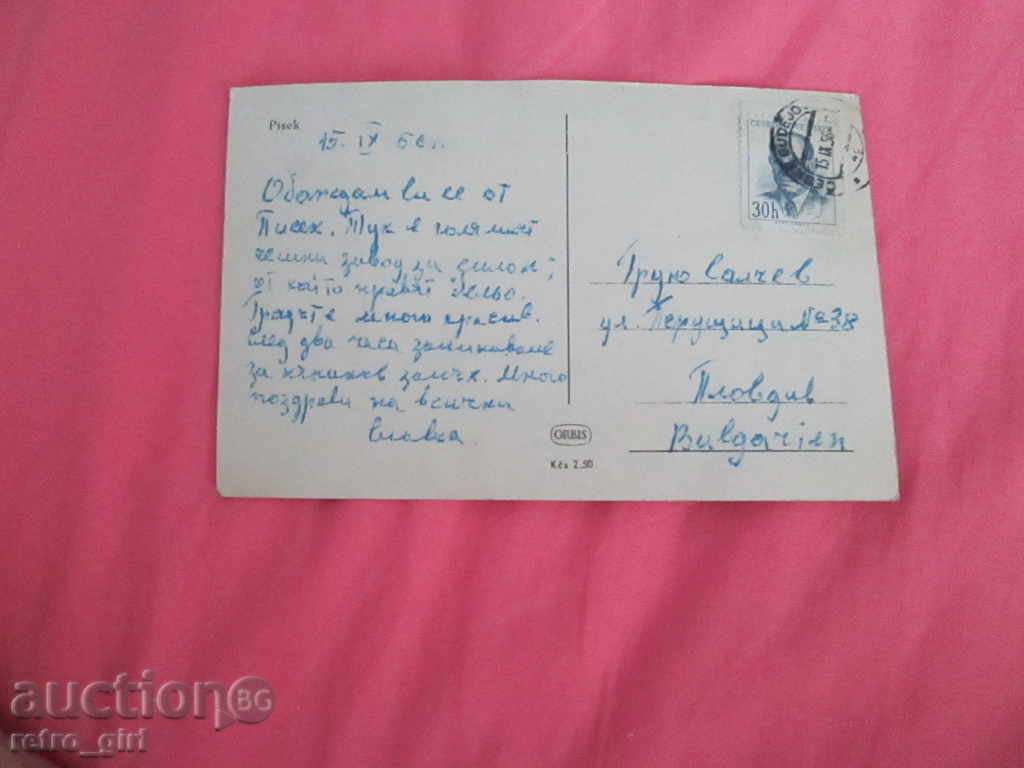 Pisek
15. IX 56 г.
Обаждам ви се от
Писек. Тук е големият
чешки завод за силон,
от който правят бельо.
Градът е много красив.
След два часа заминаваме
за замък. Много
поздрави на всички
ORBIS
Kčs 2.50
30h
BUDĚJO
15.IX.56
Груйо Салчев
ул. Перущица № 38
Пловдив
Bulgarien
auction BG
retro_girl